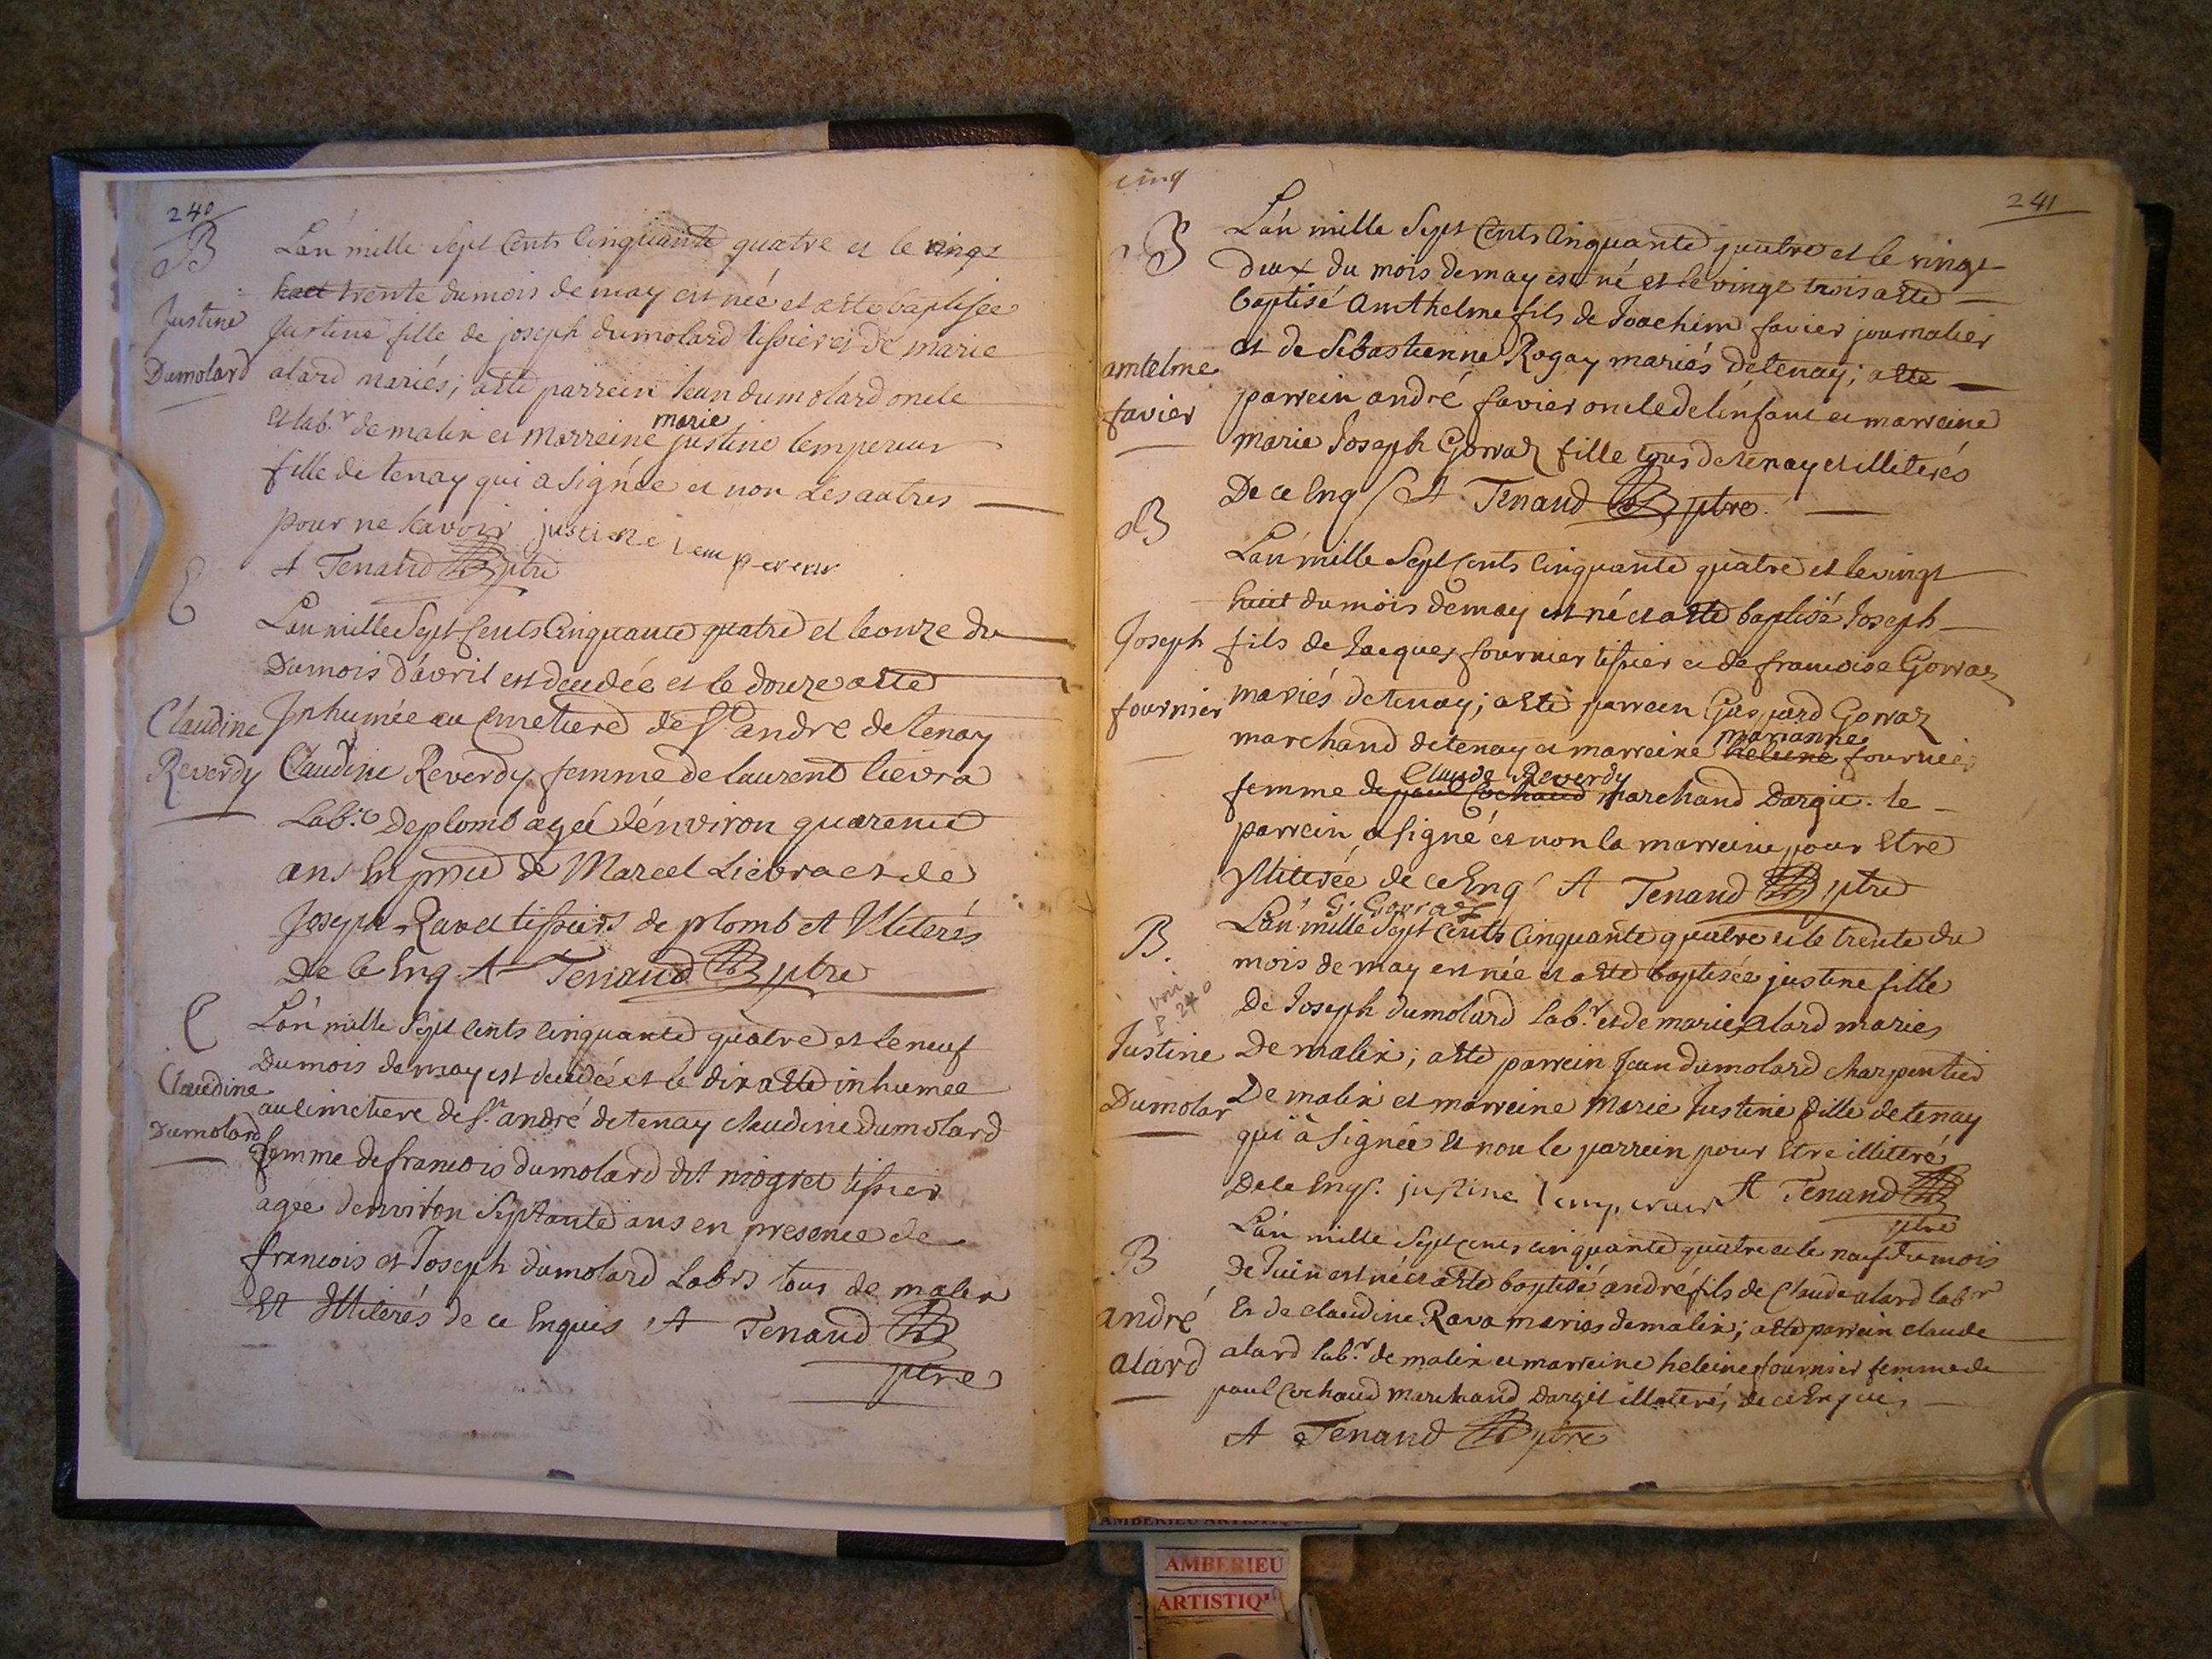 240
B
L'an mille Sept Cents Cinquante quatre et le vingt
huit trente du mois de may est née et a este baptisee
Justine
Justine fille de joseph dumolard tissier et de marie
Dumolard
alard mariés; a esté parrein Jean dumolard oncle
et lab.r de malix et Marreine marie justine lempereur
fille de tenay qui a signée et non les autres
pour ne savoir justine lempereur
A Tenand ptre
E
L'an mille Sept Cents Cinquante quatre et le onze du
Du mois d'avril est decedée et le douze a esté
Claudine
Inhumée au Cimetiere de St andre de tenay
Reverdy
Claudine Reverdy femme de laurent lievra
Lab.r de plomb agée d'environ quarente
ans En pnce de Marcel Lievra et de
Joseph Ravet tissiers de plomb et Illiterés
De Ce Enq A Tenand ptre
E
L'an mille Sept Cents Cinquante quatre et le neuf
Du mois de may est decedée et le dix a esté inhumée
Claudine
au cimetiere de St andré de tenay claudine dumolard
Dumolard
femme de francois dumolard dit miogret tissier
agée denviron Septante ans en presence de
francois et Joseph dumolard Labrs tous de malix
Et Illiterés de ce Enquis A Tenand
ptre
cinq
241
B
L'an mille Sept Cents Cinquante quatre et le vingt
deux du mois de may est né et le vingt trois a esté
baptisé Amthelme fils de Joachim favier journalier
amtelme
et de Sebastienne Rogay mariés de tenay; a esté
favier
parrein andré favier oncle de lenfant et marreine
marie Joseph Gorraz fille tous de tenay et illiterés
De ce Enq A Tenand ptre
B
L'an mille Sept Cents Cinquante quatre et le vingt
huit du mois de may est né et a esté baptisé Joseph
Joseph
fils de Jacques fournier tissier et de francoise Gorraz
fournier
mariés de tenay; a esté parrein Gaspard Gorraz
marchand de tenay et marreine heleine marianne fournier
femme de paul Cochaud Claude Reverdy marchand Dargis. le
parrein a signé et non la marreine pour Etre
Illiterée de ce Enq A Tenand ptre
G. Gorraz
B.
L'an mille Sept Cents Cinquante quatre et le trente du
mois de may est née et a esté baptisée justine fille
voir
p. 240
De Joseph dumolard lab.r et de marie Alard maries
Justine
De malix; a esté parrein Jean dumolard charpentier
Dumolar
De malix et marreine Marie Justine fille de tenay
qui a signée et non le parrein pour Etre illiteré
De ce Enqs. justine lempereur A Tenand
ptre
B
L'an mille Sept Cents cinquante quatre et le neuf du mois
De Juin est né et a esté baptisé andré fils de Claude alard labr
andré
Et de claudine Rava mariés de malix; a esté parrein claude
alard
alard lab.r de malix et marreine heleine fournier femme de
paul Cochaud marchand Dargis illiterés de ce Enquis
A Tenand ptre
AMBERIEU ARTISTIQ
AMBERIEU
ARTISTIQ